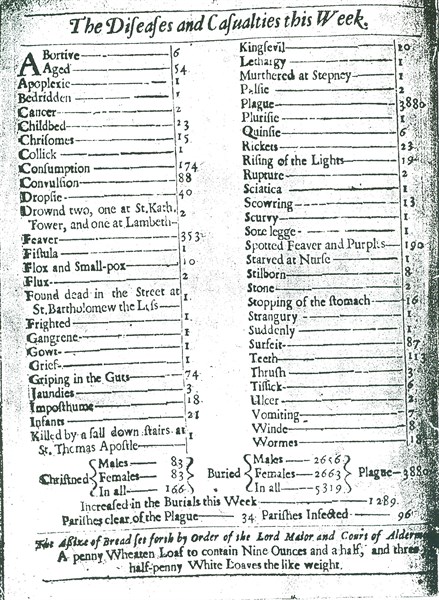 The Diseases and Casualties this Week.
Abortive 6
Aged 54
Apoplexie 1
Bedridden 1
Cancer 2
Childbed 23
Chrisomes 15
Collick 1
Consumption 174
Convulsion 88
Dropsie 40
Drownd two, one at St. Kath. Tower, and one at Lambeth 2
Feaver 353
Fistula 1
Flox and Small-pox 10
Flux 2
Found dead in the Street at St. Bartholomew the Less 1
Frighted 1
Gangrene 1
Gowt 1
Grief 1
Griping in the Guts 74
Jaundies 3
Imposthume 18
Infants 21
Killed by a fall down stairs at St. Thomas Apostle 1
Kingsevil 10
Lethargy 1
Murthered at Stepney 1
Palsie 2
Plague 3880
Plurisie 1
Quinsie 6
Rickets 23
Rising of the Lights 19
Rupture 2
Sciatica 1
Scowring 13
Scurvy 1
Sore legge 1
Spotted Feaver and Purples 190
Starved at Nurse 1
Stilborn 8
Stone 2
Stopping of the stomach 16
Strangury 1
Suddenly 1
Surfeit 87
Teeth 113
Thrush 3
Tissick 6
Ulcer 2
Vomiting 7
Winde 8
Wormes 18
Christned
Males 83
Females 83
In all 166
Buried
Males 2656
Females 2663
In all 5319
Plague 3880
Increased in the Burials this Week 1289
Parishes clear of the Plague 34 Parishes Infected 96
The Assize of Bread set forth by Order of the Lord Maior and Court of Alderm
A penny Wheaten Loaf to contain Nine Ounces and a half, and three
half-penny White Loaves the like weight.